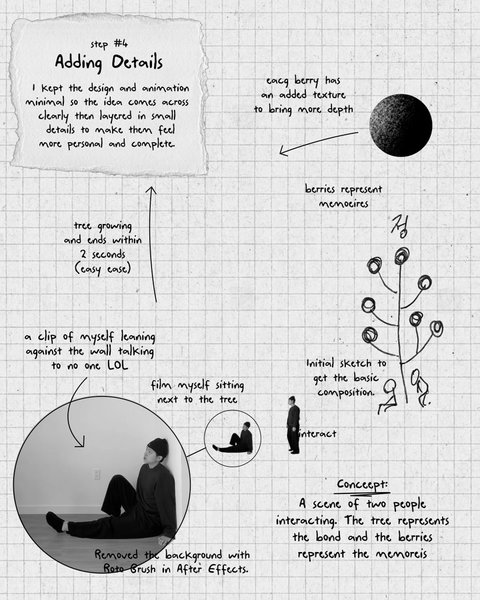 step #4
Adding Details
I kept the design and animation
minimal so the idea comes across
clearly then layered in small
details to make them feel
more personal and complete.
eacg berry has
an added texture
to bring more depth
berries represent
memoeires
정
tree growing
and ends within
2 seconds
(easy ease)
a clip of myself leaning
against the wall talking
to no one LOL
Initial sketch to
get the basic
composition.
film myself sitting
next to the tree
interact
Conceept:
A scene of two people
interacting. The tree represents
the bond and the berries
represent the memoreis
Removed the background with
Roto Brush in After Effects.